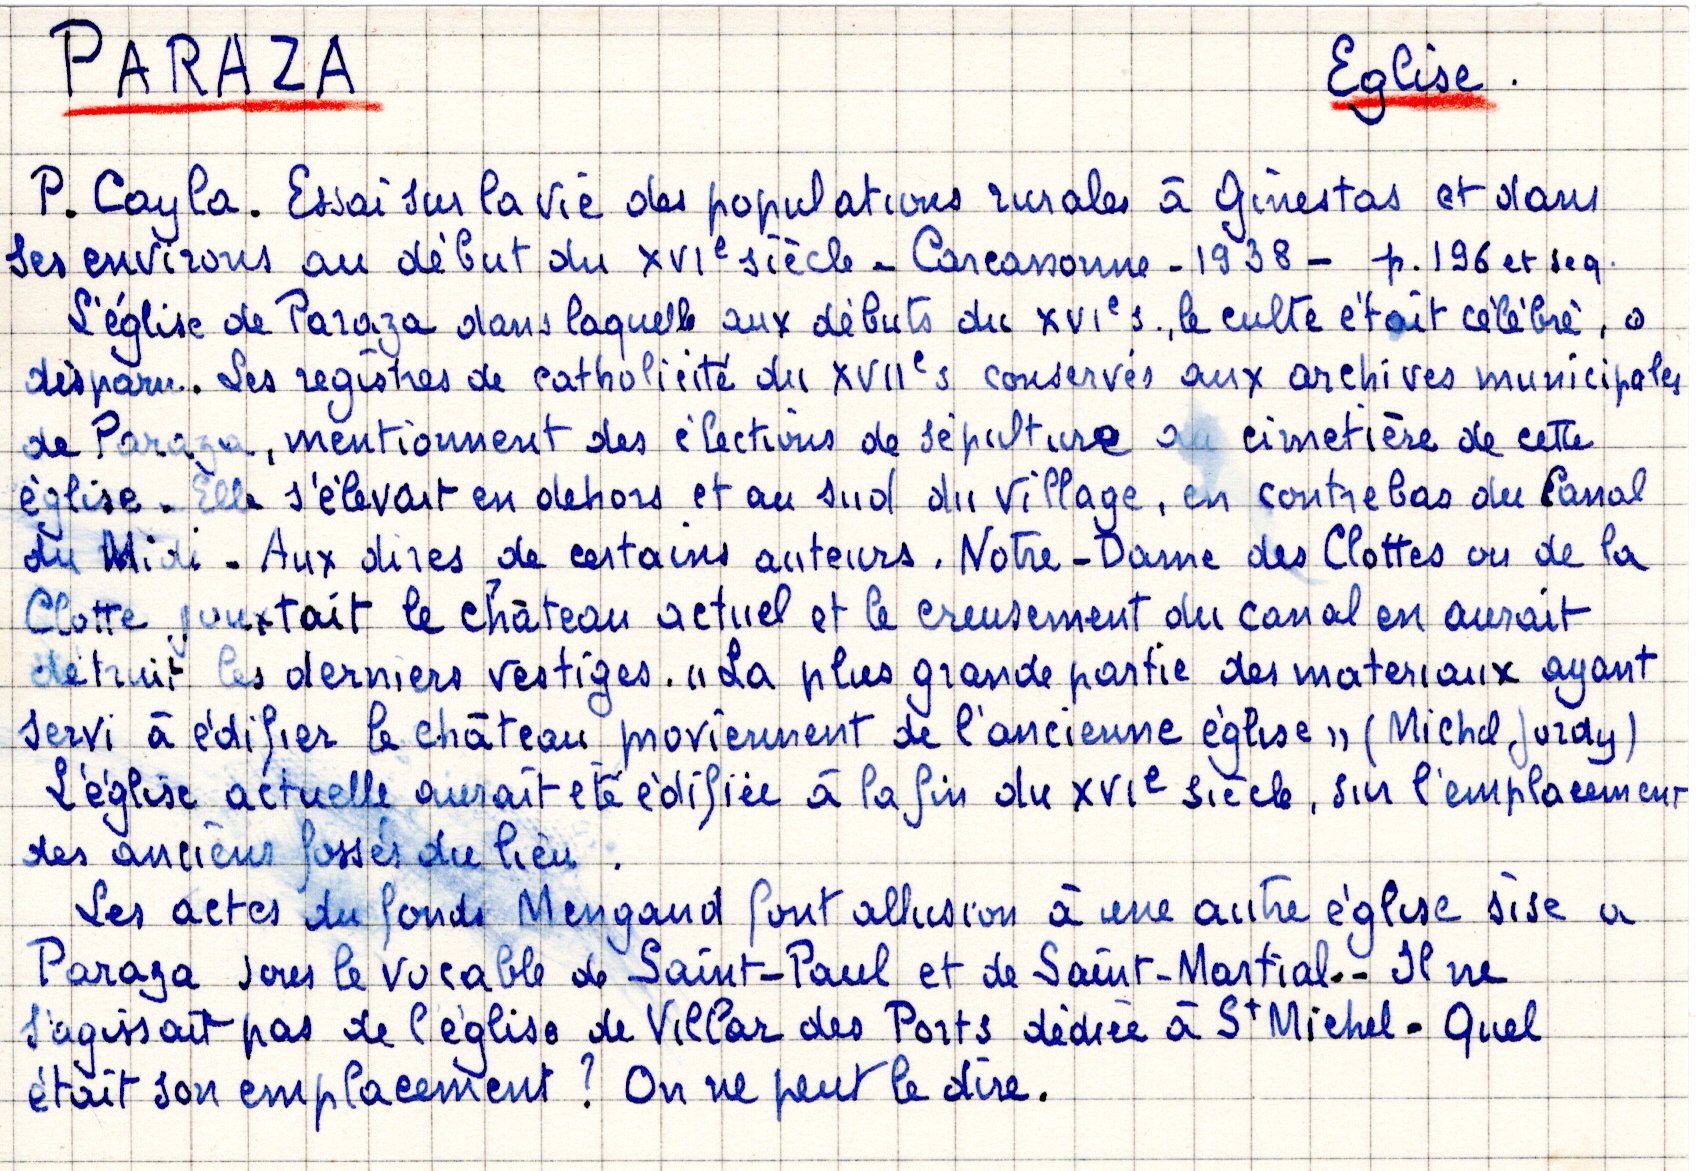 PARAZA Eglise.
P. Cayla. Essai sur la vie des populations rurales à Ginestas et dans
ses environs au début du XVIe siècle - Carcassonne - 1938 - p. 196 et seq.
L'église de Paraza dans laquelle aux débuts du XVIe s., le culte était célébré, a
disparu. Les registres de catholicité du XVIIe s conservés aux archives municipales
de Paraza, mentionnent des élections de sépulture au cimetière de cette
église. Elle s'élevait en dehors et au sud du village, en contrebas du Canal
du Midi - Aux dires de certains auteurs, Notre-Dame des Clottes ou de la
Clotte jouxtait le château actuel et le creusement du canal en aurait
détruit les derniers vestiges. "La plus grande partie des materiaux ayant
servi à édifier le château proviennent de l'ancienne église" (Michel Jordy)
L'église actuelle aurait été édifiée à la fin du XVIe siècle, sur l'emplacement
des anciens fossés du lieu.
Les actes du fonds Mengaud font allusion à une autre église sise a
Paraza sous le vocable de Saint-Paul et de Saint-Martial.- Il ne
s'agissait pas de l'église de Villar des Ports dédiée à St Michel - Quel
était son emplacement ? On ne peut le dire.